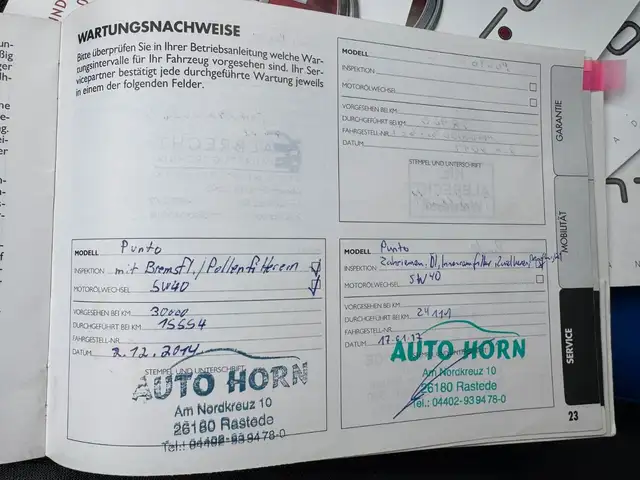 WARTUNGSNACHWEISE
Bitte überprüfen Sie in Ihrer Betriebsanleitung welche War-
tungsintervalle für Ihr Fahrzeug vorgesehen sind. Ihr Ser-
vicepartner bestätigt jede durchgeführte Wartung jeweils
in einem der folgenden Felder.
MODELL
INSPEKTION
MOTORÖLWECHSEL
VORGESEHEN BEI KM
DURCHGEFÜHRT BEI KM
FAHRGESTELL-NR.
DATUM
STEMPEL UND UNTERSCHRIFT
MODELL Punto
INSPEKTION mit Bremsfl. / Pollenfilter
MOTORÖLWECHSEL 5W40
VORGESEHEN BEI KM 30000
DURCHGEFÜHRT BEI KM 15554
FAHRGESTELL-NR.
DATUM 2.12.2014
STEMPEL UND UNTERSCHRIFT
AUTO HORN
Am Nordkreuz 10
26180 Rastede
Tel.: 04402-93 94 78-0
MODELL Punto
INSPEKTION Zahnriemen, Öl, Innenraumfilter,
MOTORÖLWECHSEL 5W40
VORGESEHEN BEI KM
DURCHGEFÜHRT BEI KM 24111
FAHRGESTELL-NR.
DATUM
AUTO HORN
Am Nordkreuz 10
26180 Rastede
Tel.: 04402-93 94 78-0
GARANTIE
MOBILITÄT
SERVICE
23